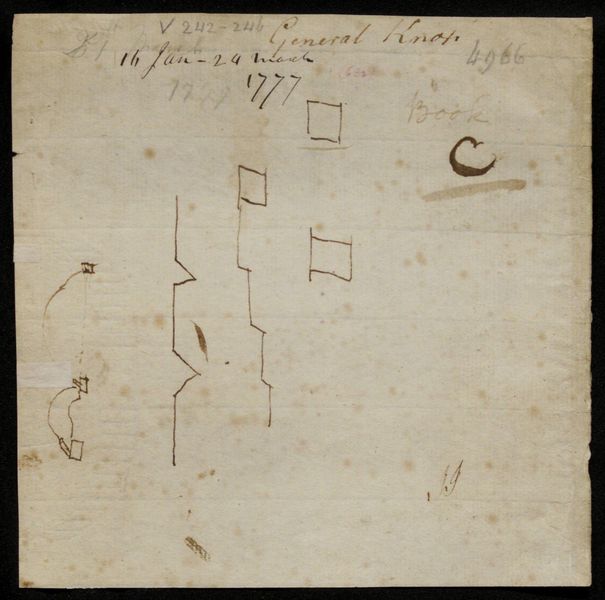 V 242-246
General Knox
16 Jan - 24 March
4966
1777
1777
Book
C